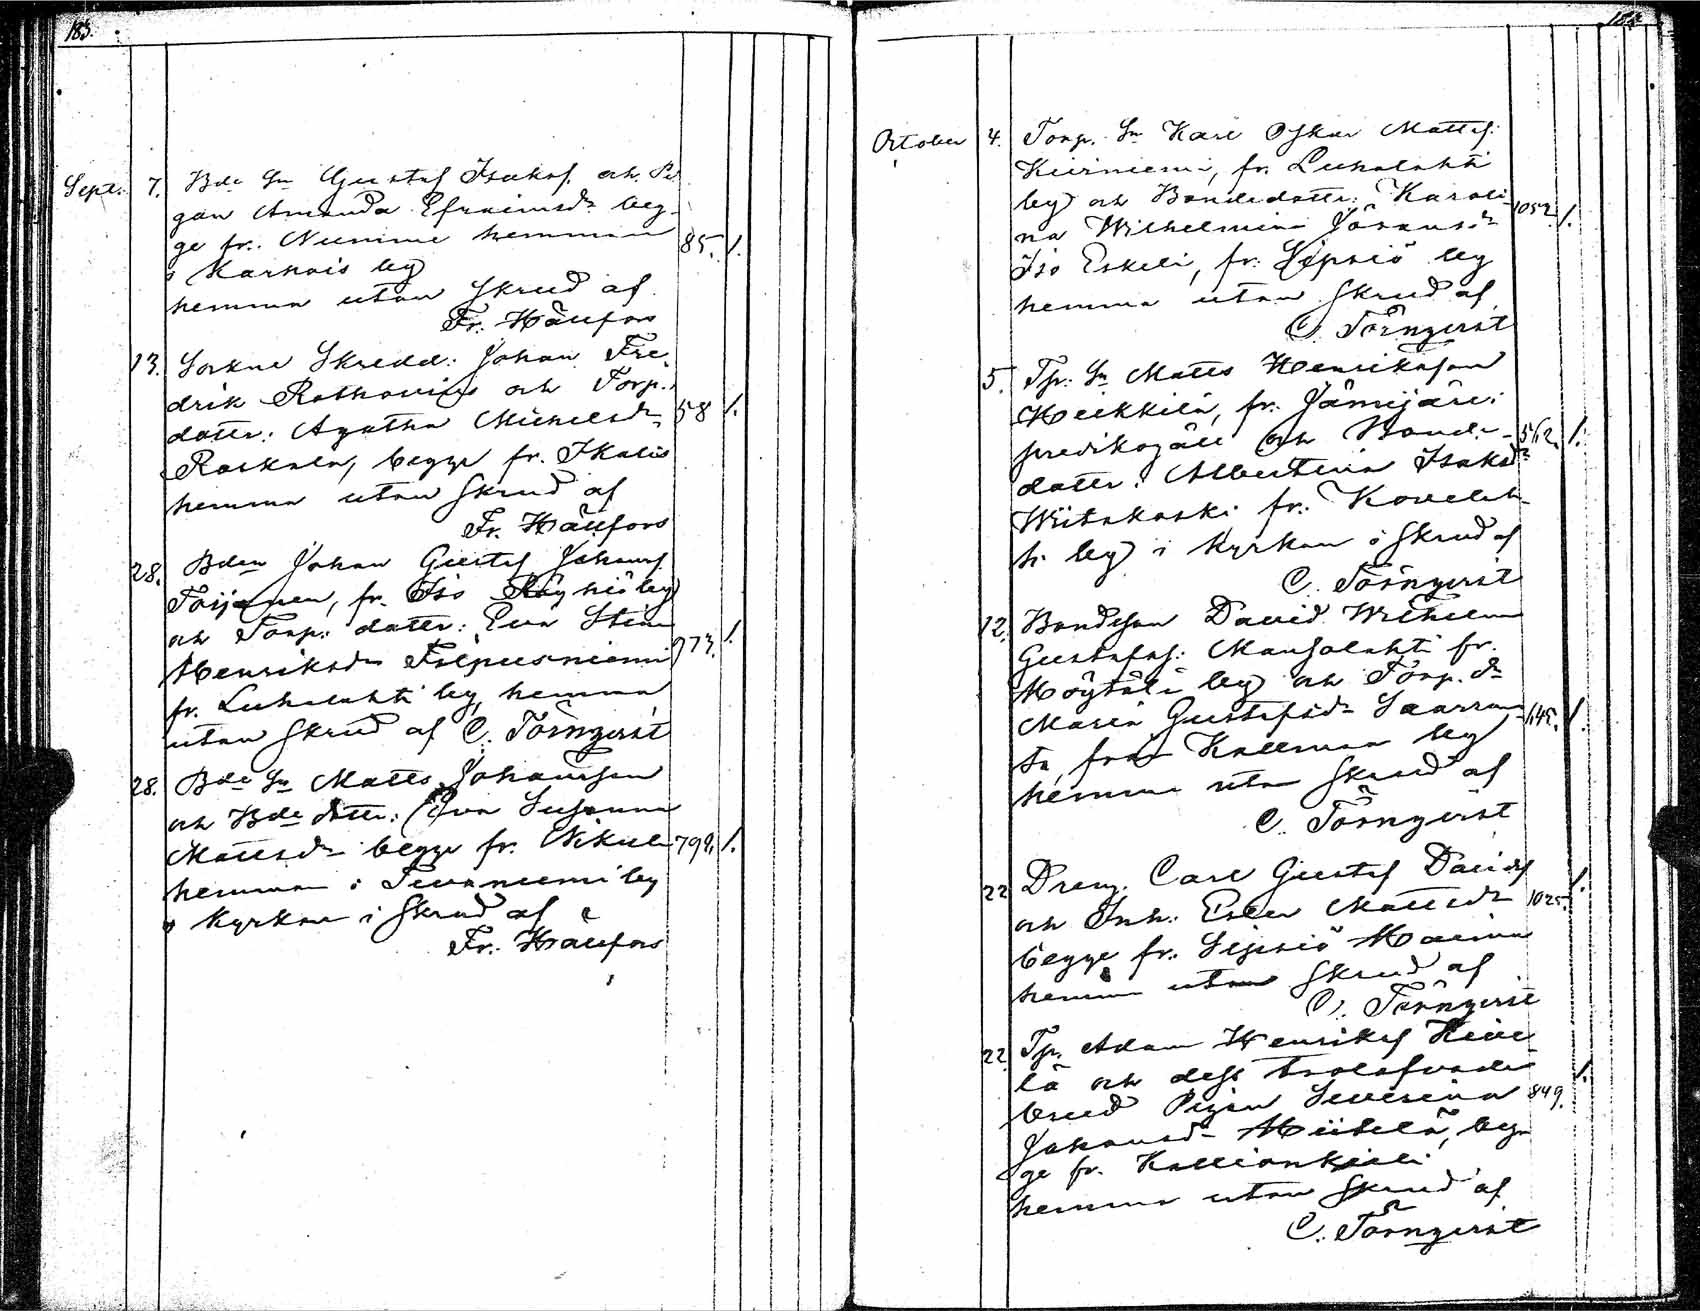 183.
Sept. 7. Bde Sn Gustaf Isaksf. och Pi
gan Amanda Efraimsdr beg-
ge fr. Niemme hemman 85. /.
i Karhois by
hemma utan skrud af
Fr. Hällfors
13. Sockne Skredd: Johan Fre
drik Rothovius och Torp.
dottr: Agatha Michelsdr 58 /.
Raskala, begge fr. Ikalis
hemma utan skrud af
Fr. Hällfors
28. Bden Johan Gustaf Johansf.
Toijanen, fr. Iso Röyhiö by
och Torp: dottr: Eva Stina
Henriksdr 973. /.
fr. Luhalahti by, hemma
utan skrud af C. Törnqvist
28. Bde Sn Matts Johansson
och Bde dottr: Eva Susanna
Mattsdr begge fr. Nikula 792. /.
hemman i Tevaniemi by
i Kyrkan i skrud af
Fr. Hällfors
October 4. Torp. Sn Karl Oskar Mattsf.
Kiirniemi, fr. Luhalahti
by och Bondedottr: Karoli-
na Wilhelmina Göransdr 1052. /.
Iso Eskeli, fr. Sipsiö by
hemma utan skrud af
C. Törnqvist
5. Tpr: Sn Matts Henriksson
Heikkilä, fr. Jämijärvi
predikogäll och Bonde- 562. /.
dottr: Albertina Isaksdr
Wiitakoski fr. Kovelah-
ti by i Kyrkan i skrud af
C. Törnqvist
12. Bondeson David Wilhelm
Gustafsf: Mansolahti fr.
Höytöli by och Torp. dr
Maria Gustafsdr 645. /.
från by
hemma utan skrud af
C. Törnqvist
22 Dreng. Carl Gustaf Davidsf /.
och Inh: Ester Mattsdr 1025.
begge fr. Sipsiö
hemma utan skrud af
C. Törnqvist
22. Tp. Adam Henriksf
lä och dess trolofvade /.
brud Pigan Severina 849.
Johansdr beg-
ge fr.
hemma utan skrud af
C. Törnqvist